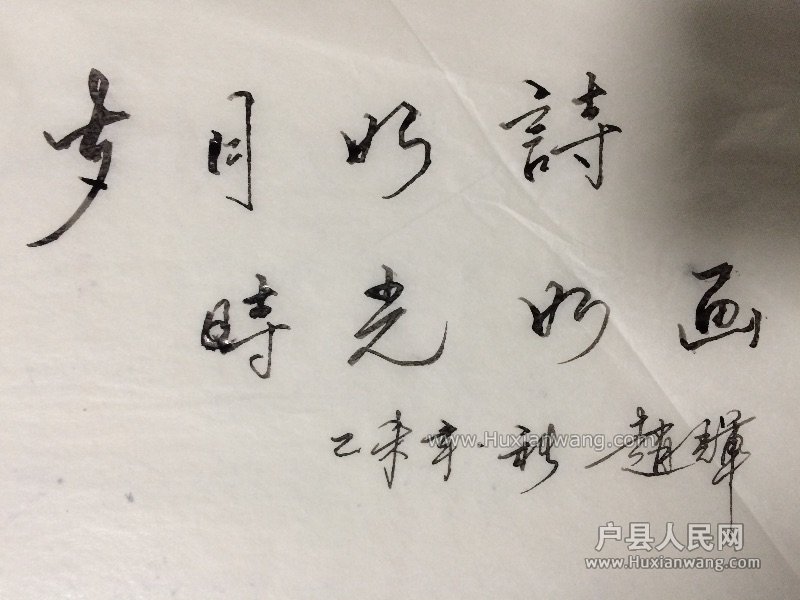 岁月如詩
時光如画
乙未年·秋 趙輝
www.Huxianwang.com
户县人民网
www.Huxianwang.com